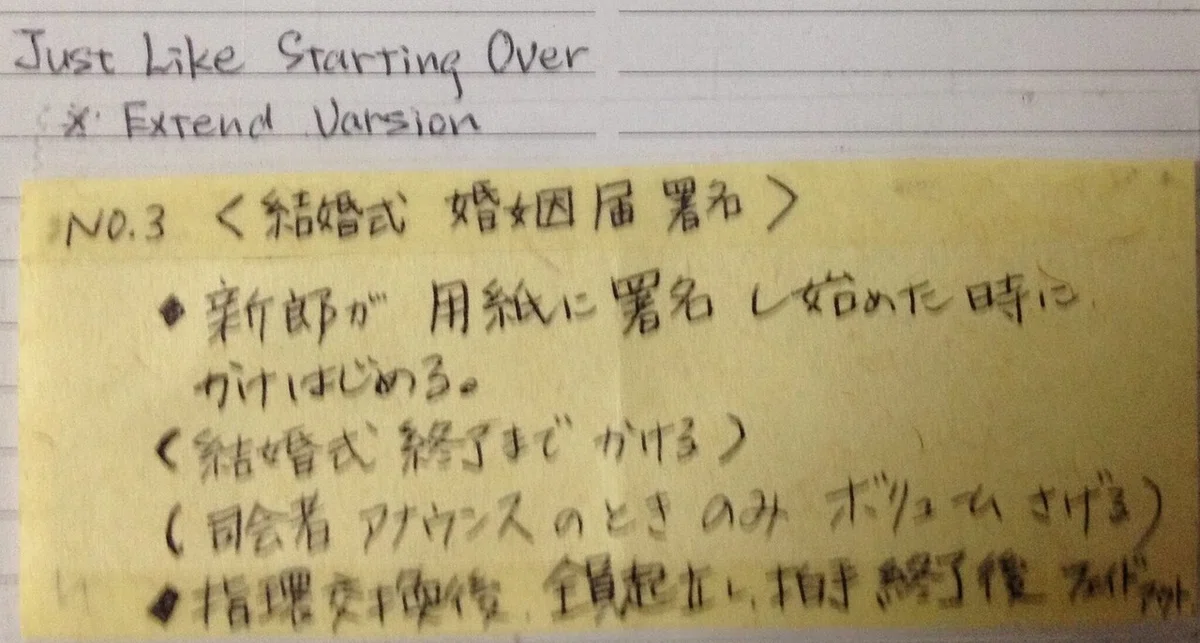 Just Like Starting Over
※ Extend Varsion
NO.3 〈結婚式 婚姻届 署名〉
◆ 新郎が 用紙に 署名 し始めた時に
かけはじめる。
(結婚式 終了まで かける)
(司会者 アナウンスのとき のみ ボリューム さげる)
◆ 指環交換後、全員起立し、拍手 終了後 フェイドアウト